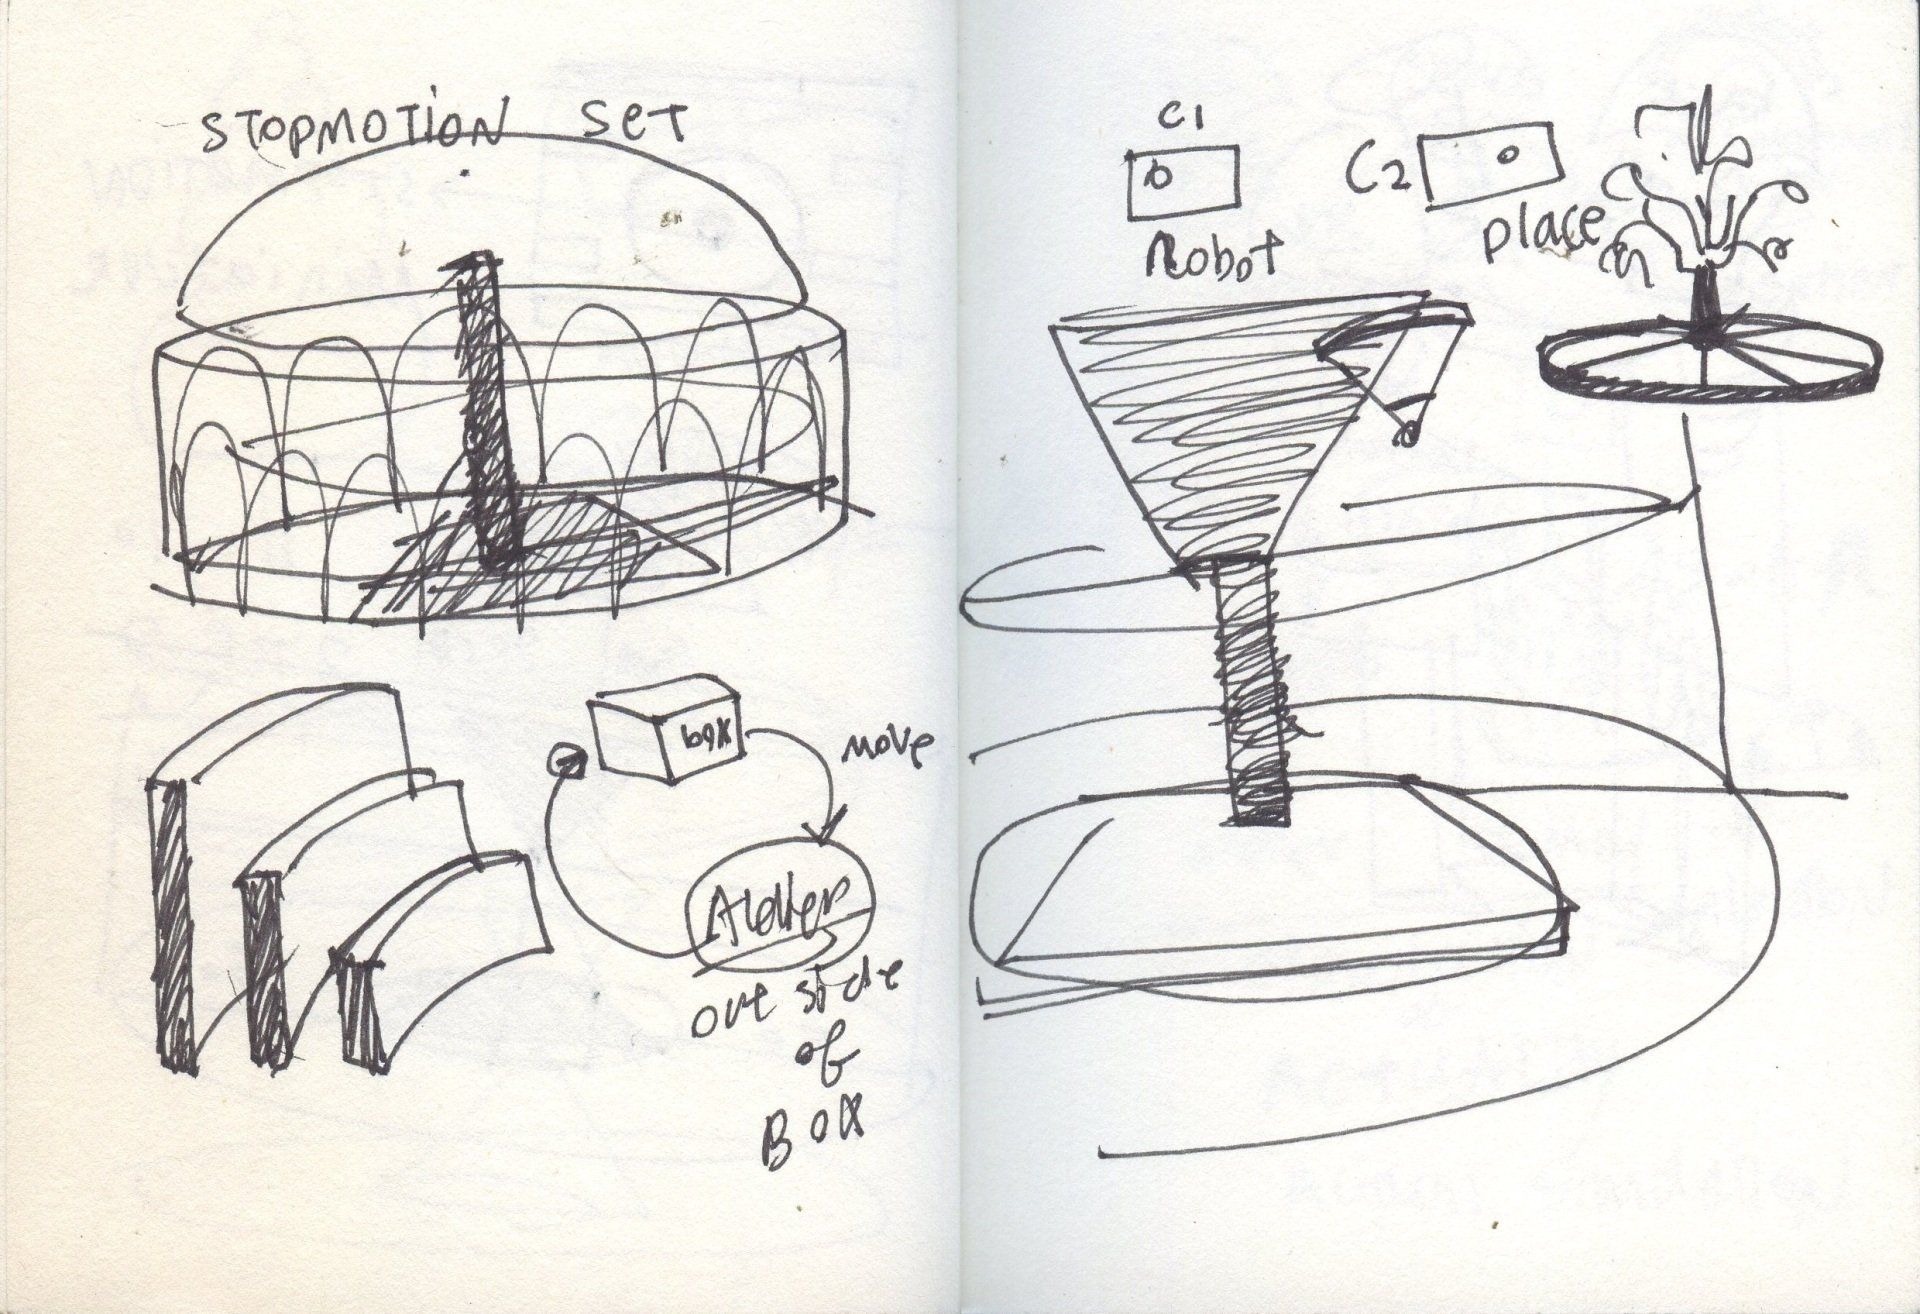 STOPMOTION SET
box
move
Atelier
outside
of
BOX
C1
Robot
C2
place